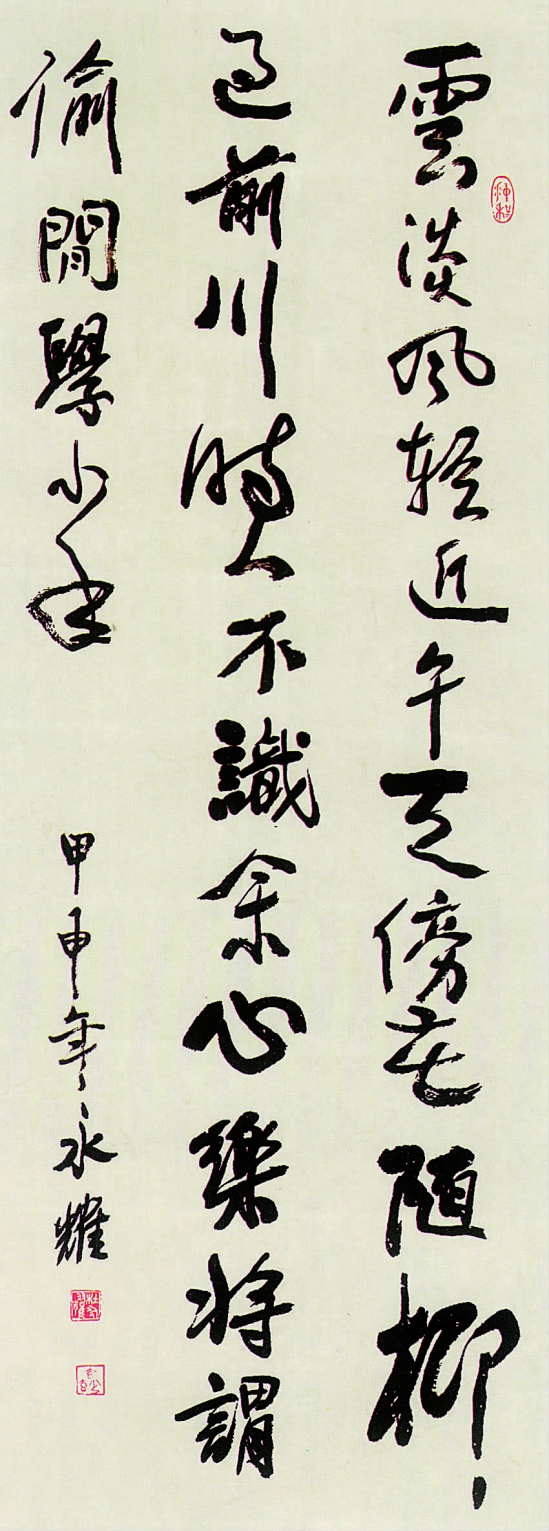 雲淡風輕近午天傍花随柳
過前川時人不識余心樂將謂
偷閒學少年
甲申年永耀